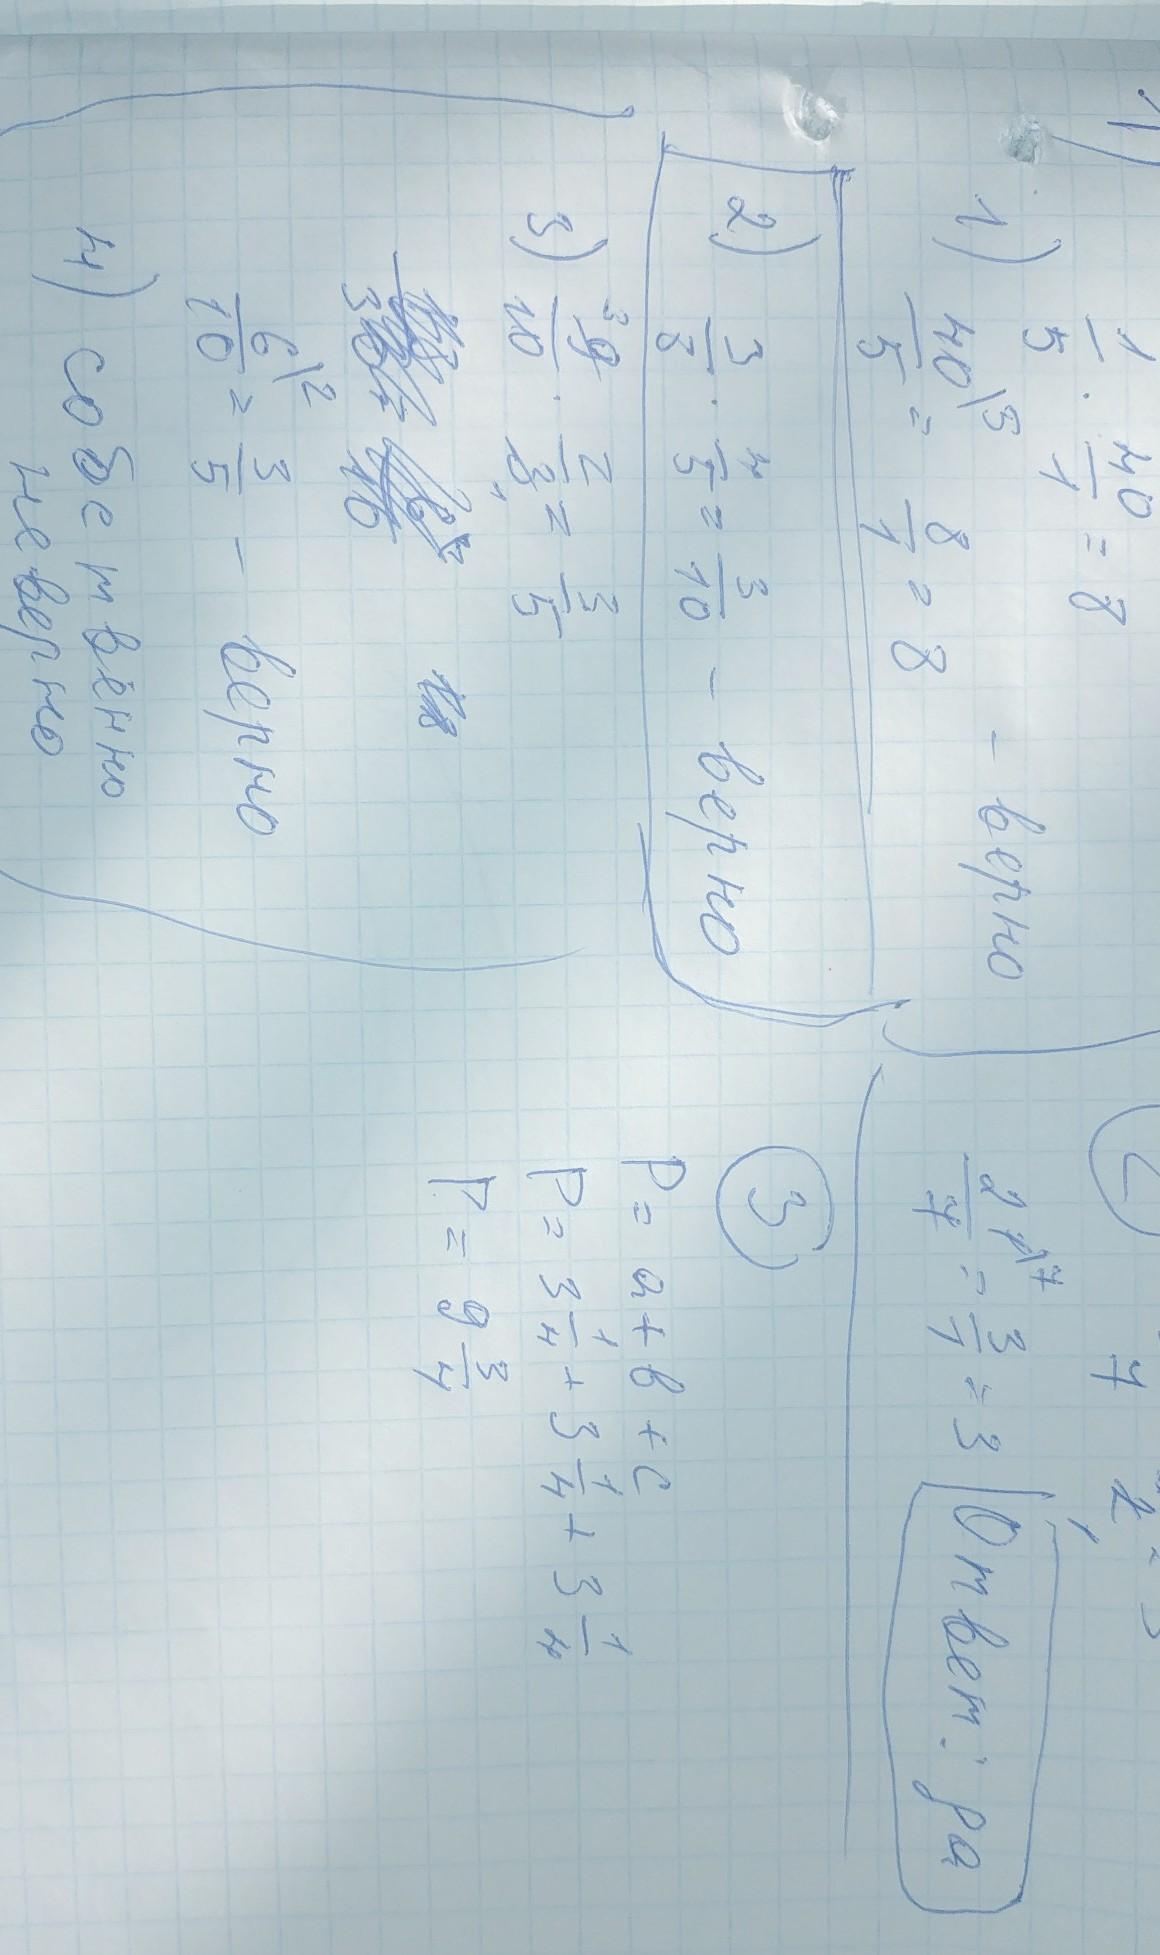 1)
1/5 · 40/1 = 8
1) 40\5/5 = 8/1 = 8 - верно
2) 3/8 · 4/5 = 3/10 - верно
3) 9/10 · 2/3 = 3/5
6\2/10 = 3/5 - верно
4) собственно
неверно
21\7/7 = 3/1 = 3
Ответ: ра
3
P = a + b + c
P = 3 1/4 + 3 1/4 + 3 1/4
P = 9 3/4